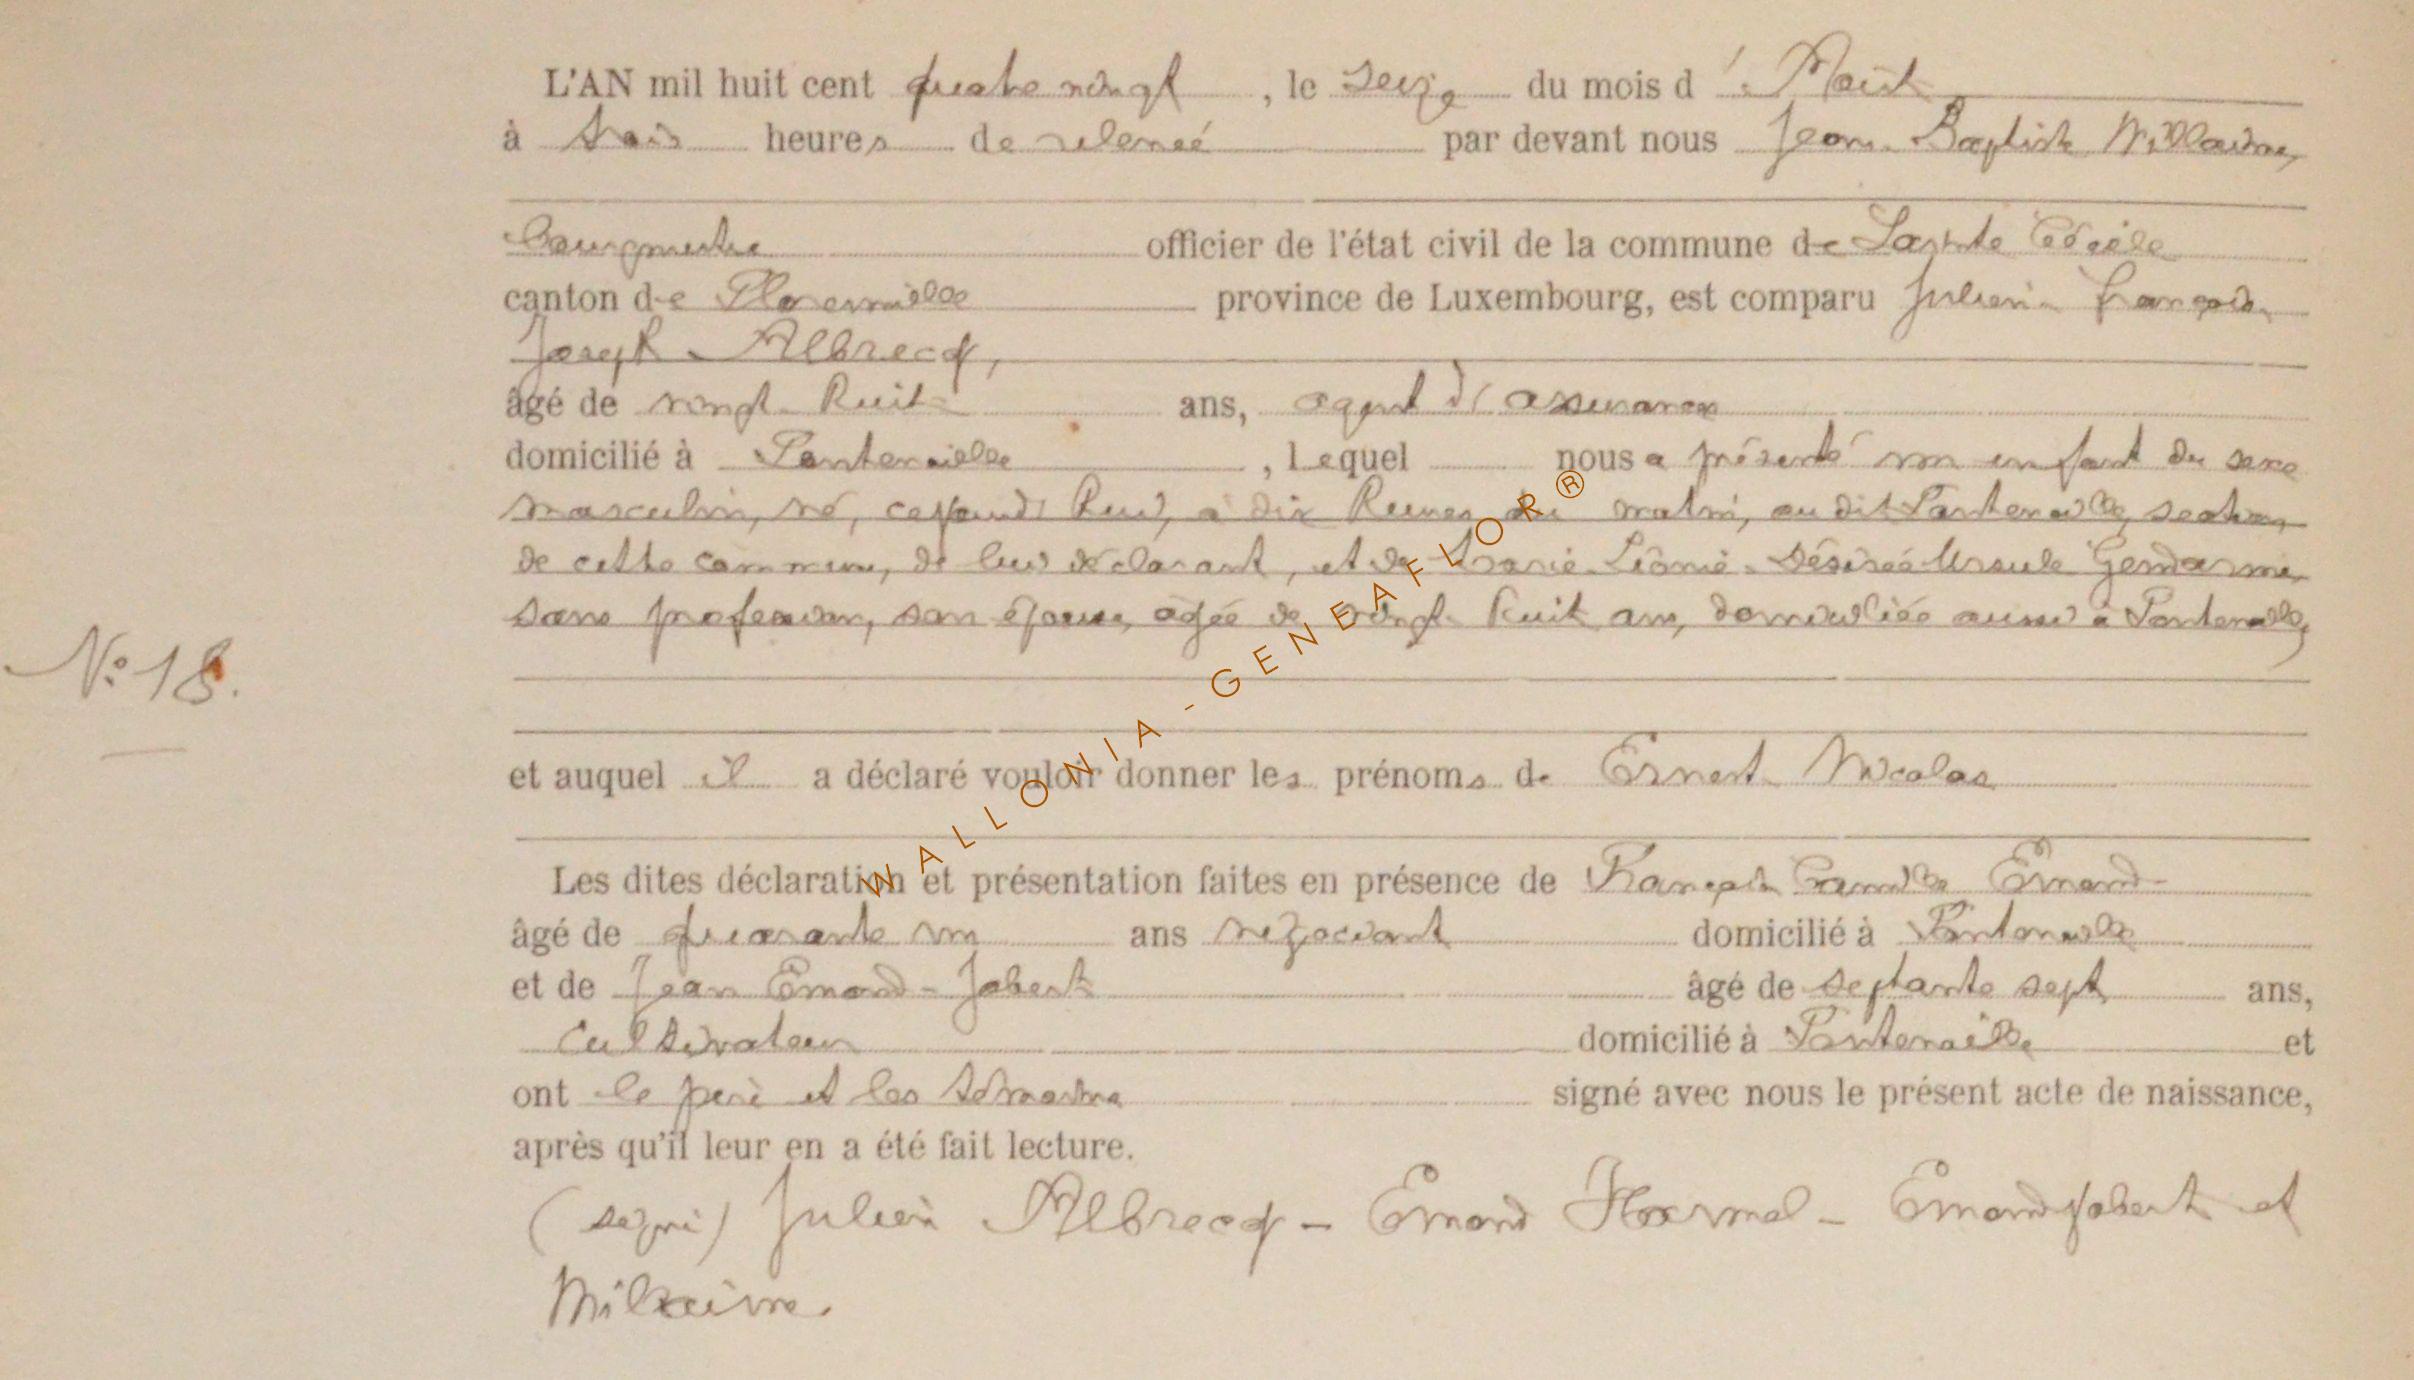 L'AN mil huit cent quatre vingt, le seize du mois d'Août
à trois heures de relevée par devant nous Jean-Baptiste Millaime,
bourgmestre officier de l'état civil de la commune de Sainte Cécile
canton de Florenville province de Luxembourg, est comparu Julien-François-
Joseph Albrecq,
âgé de vingt-huit ans, agent d'assurances
domicilié à Fontenoille, Lequel nous a présenté un enfant du sexe
masculin, né, cejourd'hui, à dix heures du matin, au dit Fontenoille, section
de cette commune, de lui déclarant, et de Marie-Léonie-Désirée Ursule Gendarme,
sans profession, son épouse, âgée de vingt-huit ans, domiciliée aussi à Fontenoille,
N° 18.
et auquel il a déclaré vouloir donner les prénoms de Ernest Nicolas
Les dites déclaration et présentation faites en présence de François Camille Emond
âgé de quarante un ans négociant domicilié à Fontenoille
et de Jean Emond-Jobert âgé de septante sept ans,
cultivateur domicilié à Fontenoille et
ont le père et les témoins signé avec nous le présent acte de naissance,
après qu'il leur en a été fait lecture.
(signé) Julien Albrecq - Emond - Emond Jobert et
Millaime.
WALLONIA-GENEAFLOR®